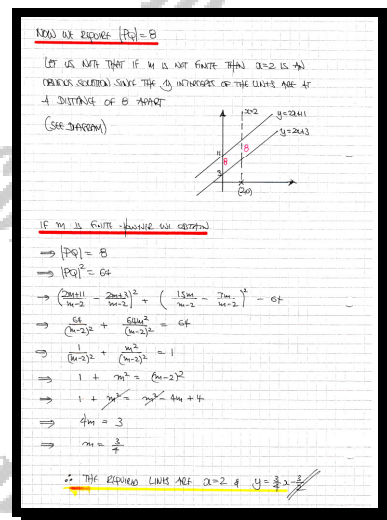 NOW WE REQUIRE |PQ| = 8
LET US NOTE THAT IF m IS NOT FINITE THEN x=2 IS AN
OBVIOUS SOLUTION SINCE THE y INTERCEPTS OF THE LINES ARE AT
A DISTANCE OF 8 APART
(SEE DIAGRAM)
x=2
y=2x+11
y=2x+3
11
8
8
3
(2,0)
IF m IS FINITE HOWEVER WE OBTAIN
⇒ |PQ| = 8
⇒ |PQ|² = 64
⇒ (2m+11/m-2 - 2m+3/m-2)² + (15m/m-2 - 7m/m-2)² = 64
⇒ 64/(m-2)² + 64m²/(m-2)² = 64
⇒ 1/(m-2)² + m²/(m-2)² = 1
⇒ 1 + m² = (m-2)²
⇒ 1 + m² = m² - 4m + 4
⇒ 4m = 3
⇒ m = 3/4
∴ THE REQUIRED LINES ARE x=2 & y = 3/4 x - 3/2